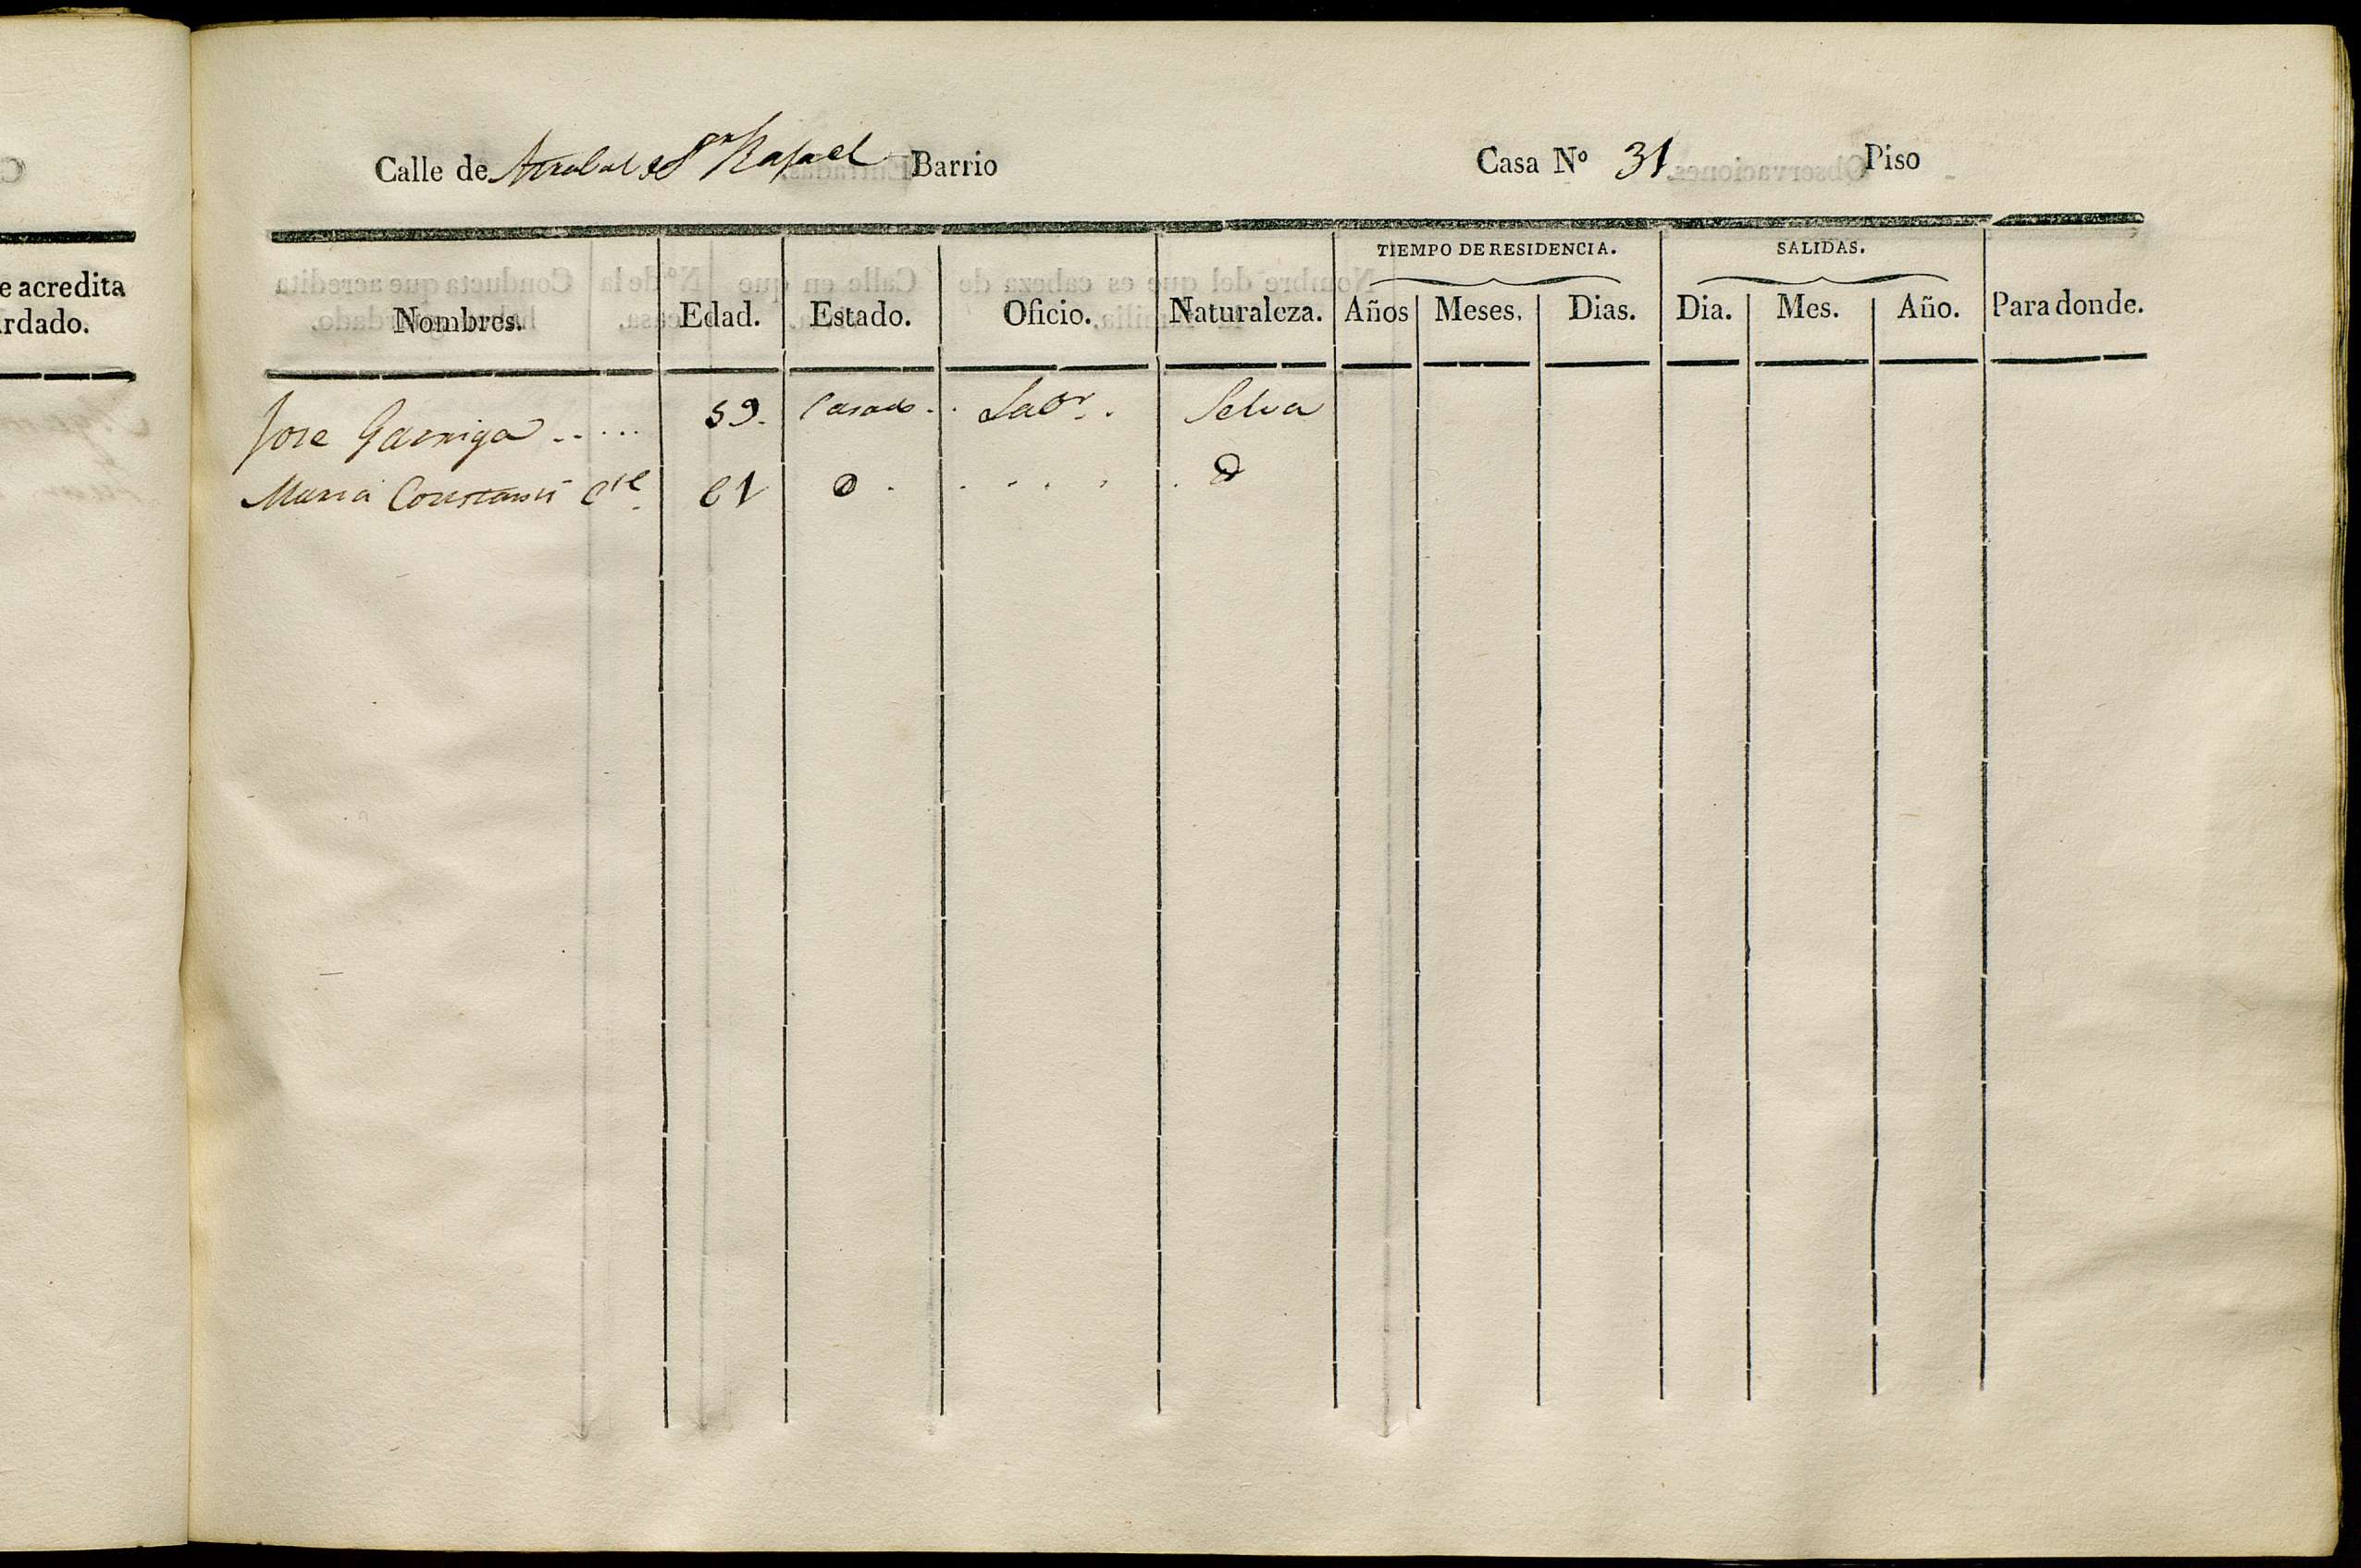 e acredita
rdado.
Calle de Arrabal S.n Rafael Barrio Casa Nº 31 Piso
TIEMPO DE RESIDENCIA. SALIDAS.
Nombres. Edad. Estado. Oficio. Naturaleza. Años Meses. Dias. Dia. Mes. Año. Para donde.
Jose Garriga ..... 59. Casado . . Labr. Selva
Maria Constanti 61 d . . . . . . d